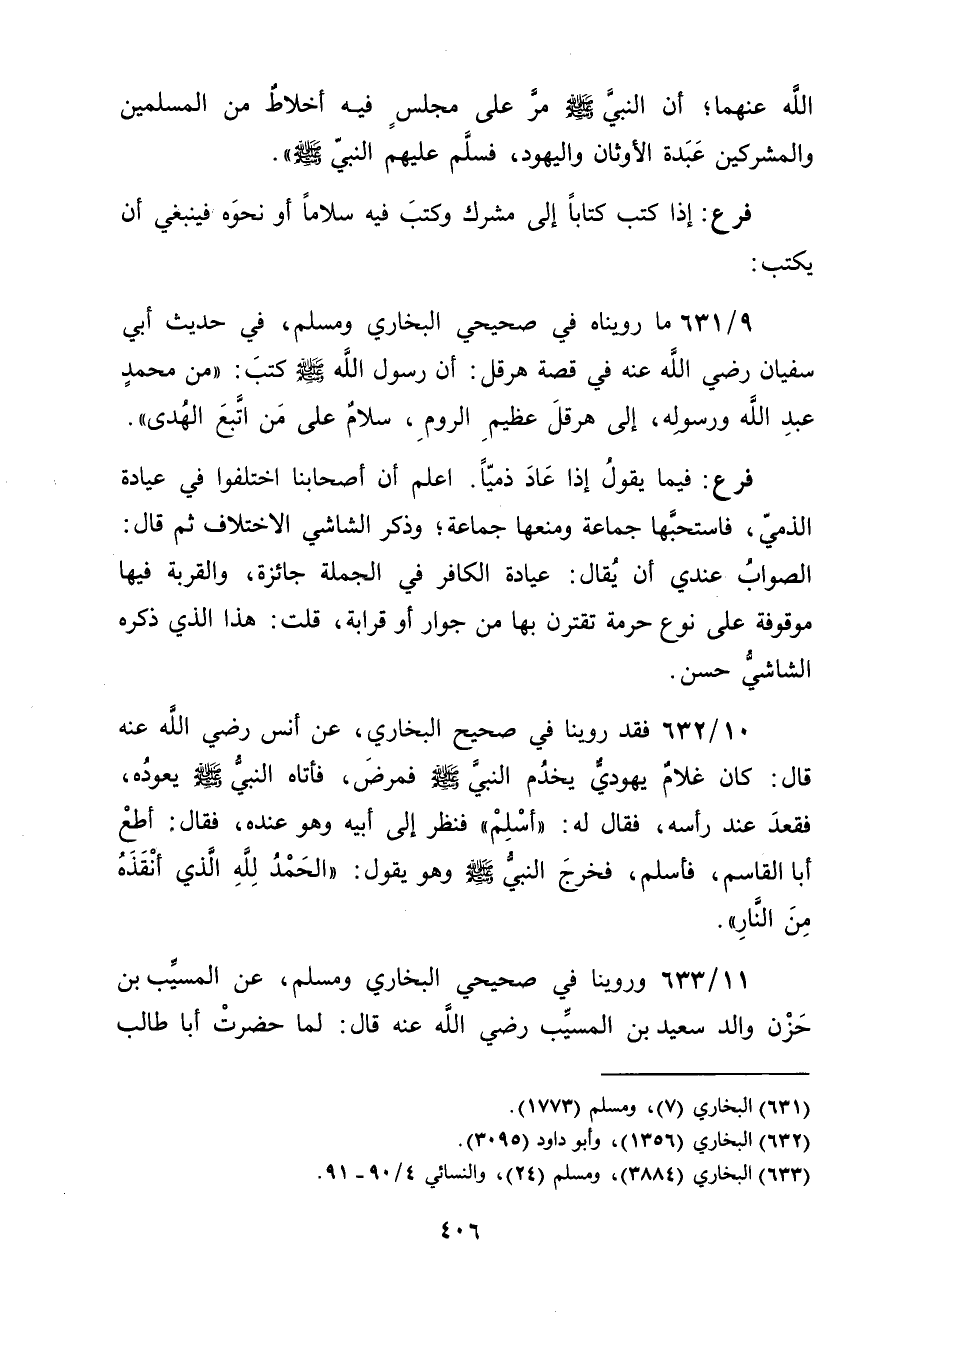 اللَّه عنهما؛ أن النبيَّ ﷺ مرَّ على مجلسٍ فيه أخلاطٌ من المسلمين
والمشركين عَبَدة الأوثان واليهود، فسلَّم عليهم النبيّ ﷺ».
فرع: إذا كتب كتاباً إلى مشرك وكتبَ فيه سلاماً أو نحوَه فينبغي أن
يكتب:
٦٣١/٩ ما رويناه في صحيحي البخاري ومسلم، في حديث أبي
سفيان رضي اللَّه عنه في قصة هرقل: أن رسول اللَّه ﷺ كتبَ: «من محمدٍ
عبدِ اللَّه ورسولِه، إلى هرقلَ عظيمِ الرومِ، سلامٌ على مَن اتَّبعَ الهُدى».
فرع: فيما يقولُ إذا عَادَ ذميّاً. اعلم أن أصحابنا اختلفوا في عيادة
الذميّ، فاستحبَّها جماعة ومنعها جماعة؛ وذكر الشاشي الاختلاف ثم قال:
الصوابُ عندي أن يُقال: عيادة الكافر في الجملة جائزة، والقربة فيها
موقوفة على نوع حرمة تقترن بها من جوار أو قرابة، قلت: هذا الذي ذكره
الشاشيُّ حسن.
٦٣٢/١٠ فقد روينا في صحيح البخاري، عن أنس رضي اللَّه عنه
قال: كان غلامٌ يهوديٌّ يخدُم النبيَّ ﷺ فمرضَ، فأتاه النبيُّ ﷺ يعودُه،
فقعدَ عند رأسه، فقال له: «أسْلِمْ» فنظر إلى أبيه وهو عنده، فقال: أطعْ
أبا القاسم، فأسلم، فخرجَ النبيُّ ﷺ وهو يقول: «الحَمْدُ لِلَّهِ الَّذي أنْقَذَهُ
مِنَ النَّارِ».
٦٣٣/١١ وروينا في صحيحي البخاري ومسلم، عن المسيِّب بن
حَزْن والد سعيد بن المسيِّب رضي اللَّه عنه قال: لما حضرتْ أبا طالب
(٦٣١) البخاري (٧)، ومسلم (١٧٧٣).
(٦٣٢) البخاري (١٣٥٦)، وأبو داود (٣٠٩٥).
(٦٣٣) البخاري (٣٨٨٤)، ومسلم (٢٤)، والنسائي ٤/ ٩٠ ـ ٩١.
٤٠٦